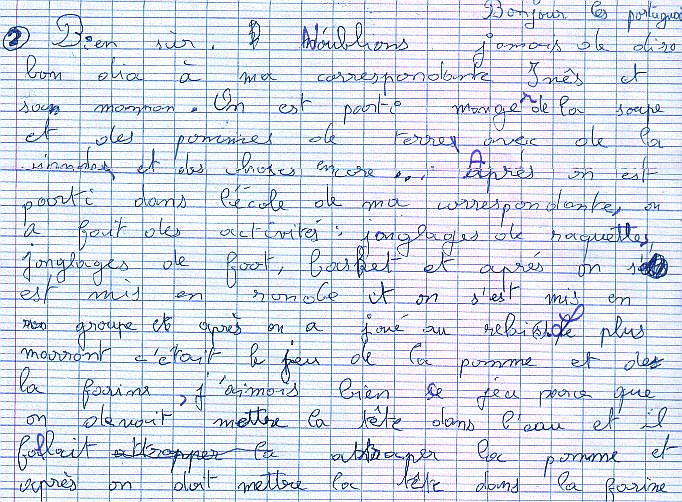 Bonjour les portugai
2 Bien sûr. N'oublions jamais de dire
bon dia à ma correspondante Inês et
son maman. On est parti manger de la soupe
et des pommes de terres avec de la
viande, et des choses encore .... Après on est
parti dans l'école de ma correspondante, on
a fait des activités : jonglages de raquettes,
jonglages de foot, basket et après on s
est mis en ronde et on s'est mis en
groupe et après on a joué au le plus
marrant c'était le jeu de la pomme et de
la farine, j'aimais bien ce jeu parce que
on devait mettre la tête dans l'eau et il
fallait attrapper la attraper la pomme et
après on doit mettre la tête dans la farine